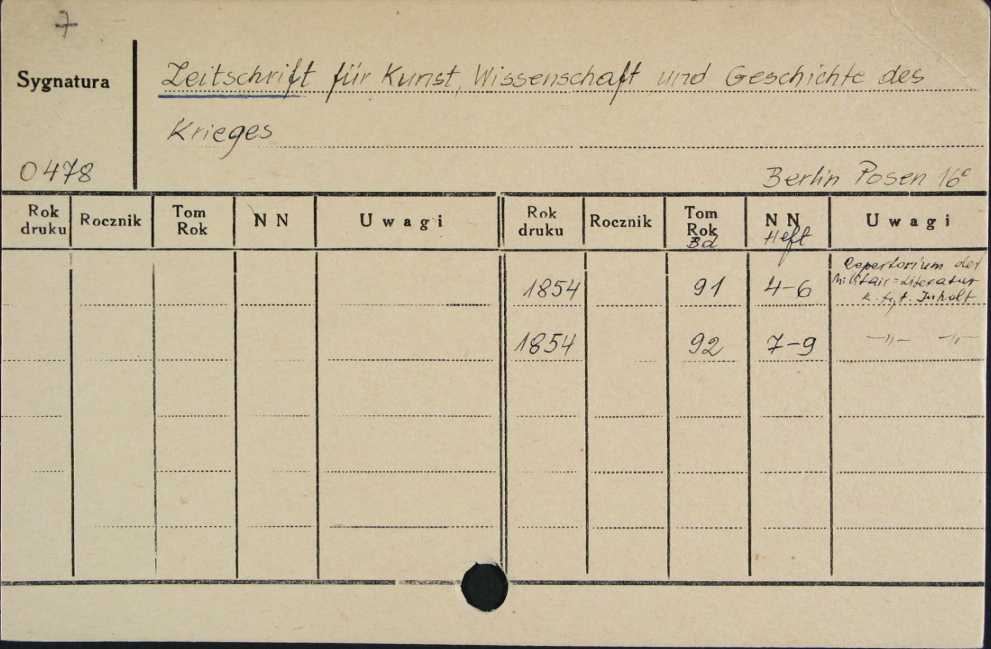 7
Sygnatura
Zeitschrift für Kunst, Wissenschaft und Geschichte des
Krieges
0478
Berlin Posen 16°
Rok druku Rocznik Tom Rok N N Uwagi Rok druku Rocznik Tom Rok Bd N N Heft Uwagi
1854 91 4-6 Repertorium der
Militair=Literatur
Inhalt
1854 92 7-9 -„- -„-